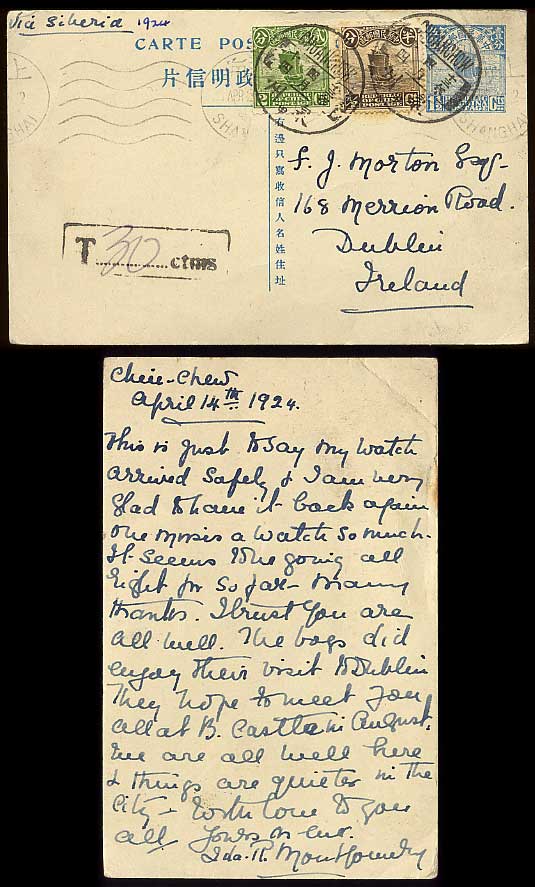 Via Siberia 1924
CARTE POS
片信明政
右邊只寫收信人名姓住址
CHUANCHOW
SHANGHAI
S. J. Morton Esq.
168 Merrion Road.
Dublin
Ireland
T 30 ctms
Chin-Chew
April 14th 1924.
This is just to say my watch
arrived safely & I am very
glad to have it back again
one misses a watch so much.
It seems to be going all
right for so far - many
thanks. I trust you are
all well. The boys did
enjoy their visit to Dublin
They hope to meet you
all at B. Castle in August.
We are all well here
& things are quieter in the
City - With love to you
all Yours as ever.
Ida. R. Montgomery